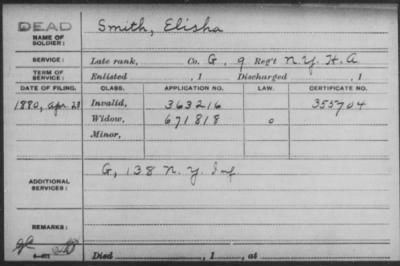 DEAD
NAME OF SOLDIER: Smith, Elisha
SERVICE: Late rank, Co. G, 9 Reg't N.Y. H.A.
TERM OF SERVICE: Enlisted , 1 Discharged , 1
DATE OF FILING. CLASS. APPLICATION NO. LAW. CERTIFICATE NO.
1880, Apr. 28 Invalid, 363216 355704
Widow, 671818 o
Minor,
ADDITIONAL SERVICES: G, 138 N.Y. Inf
REMARKS:
Died , 1 , at